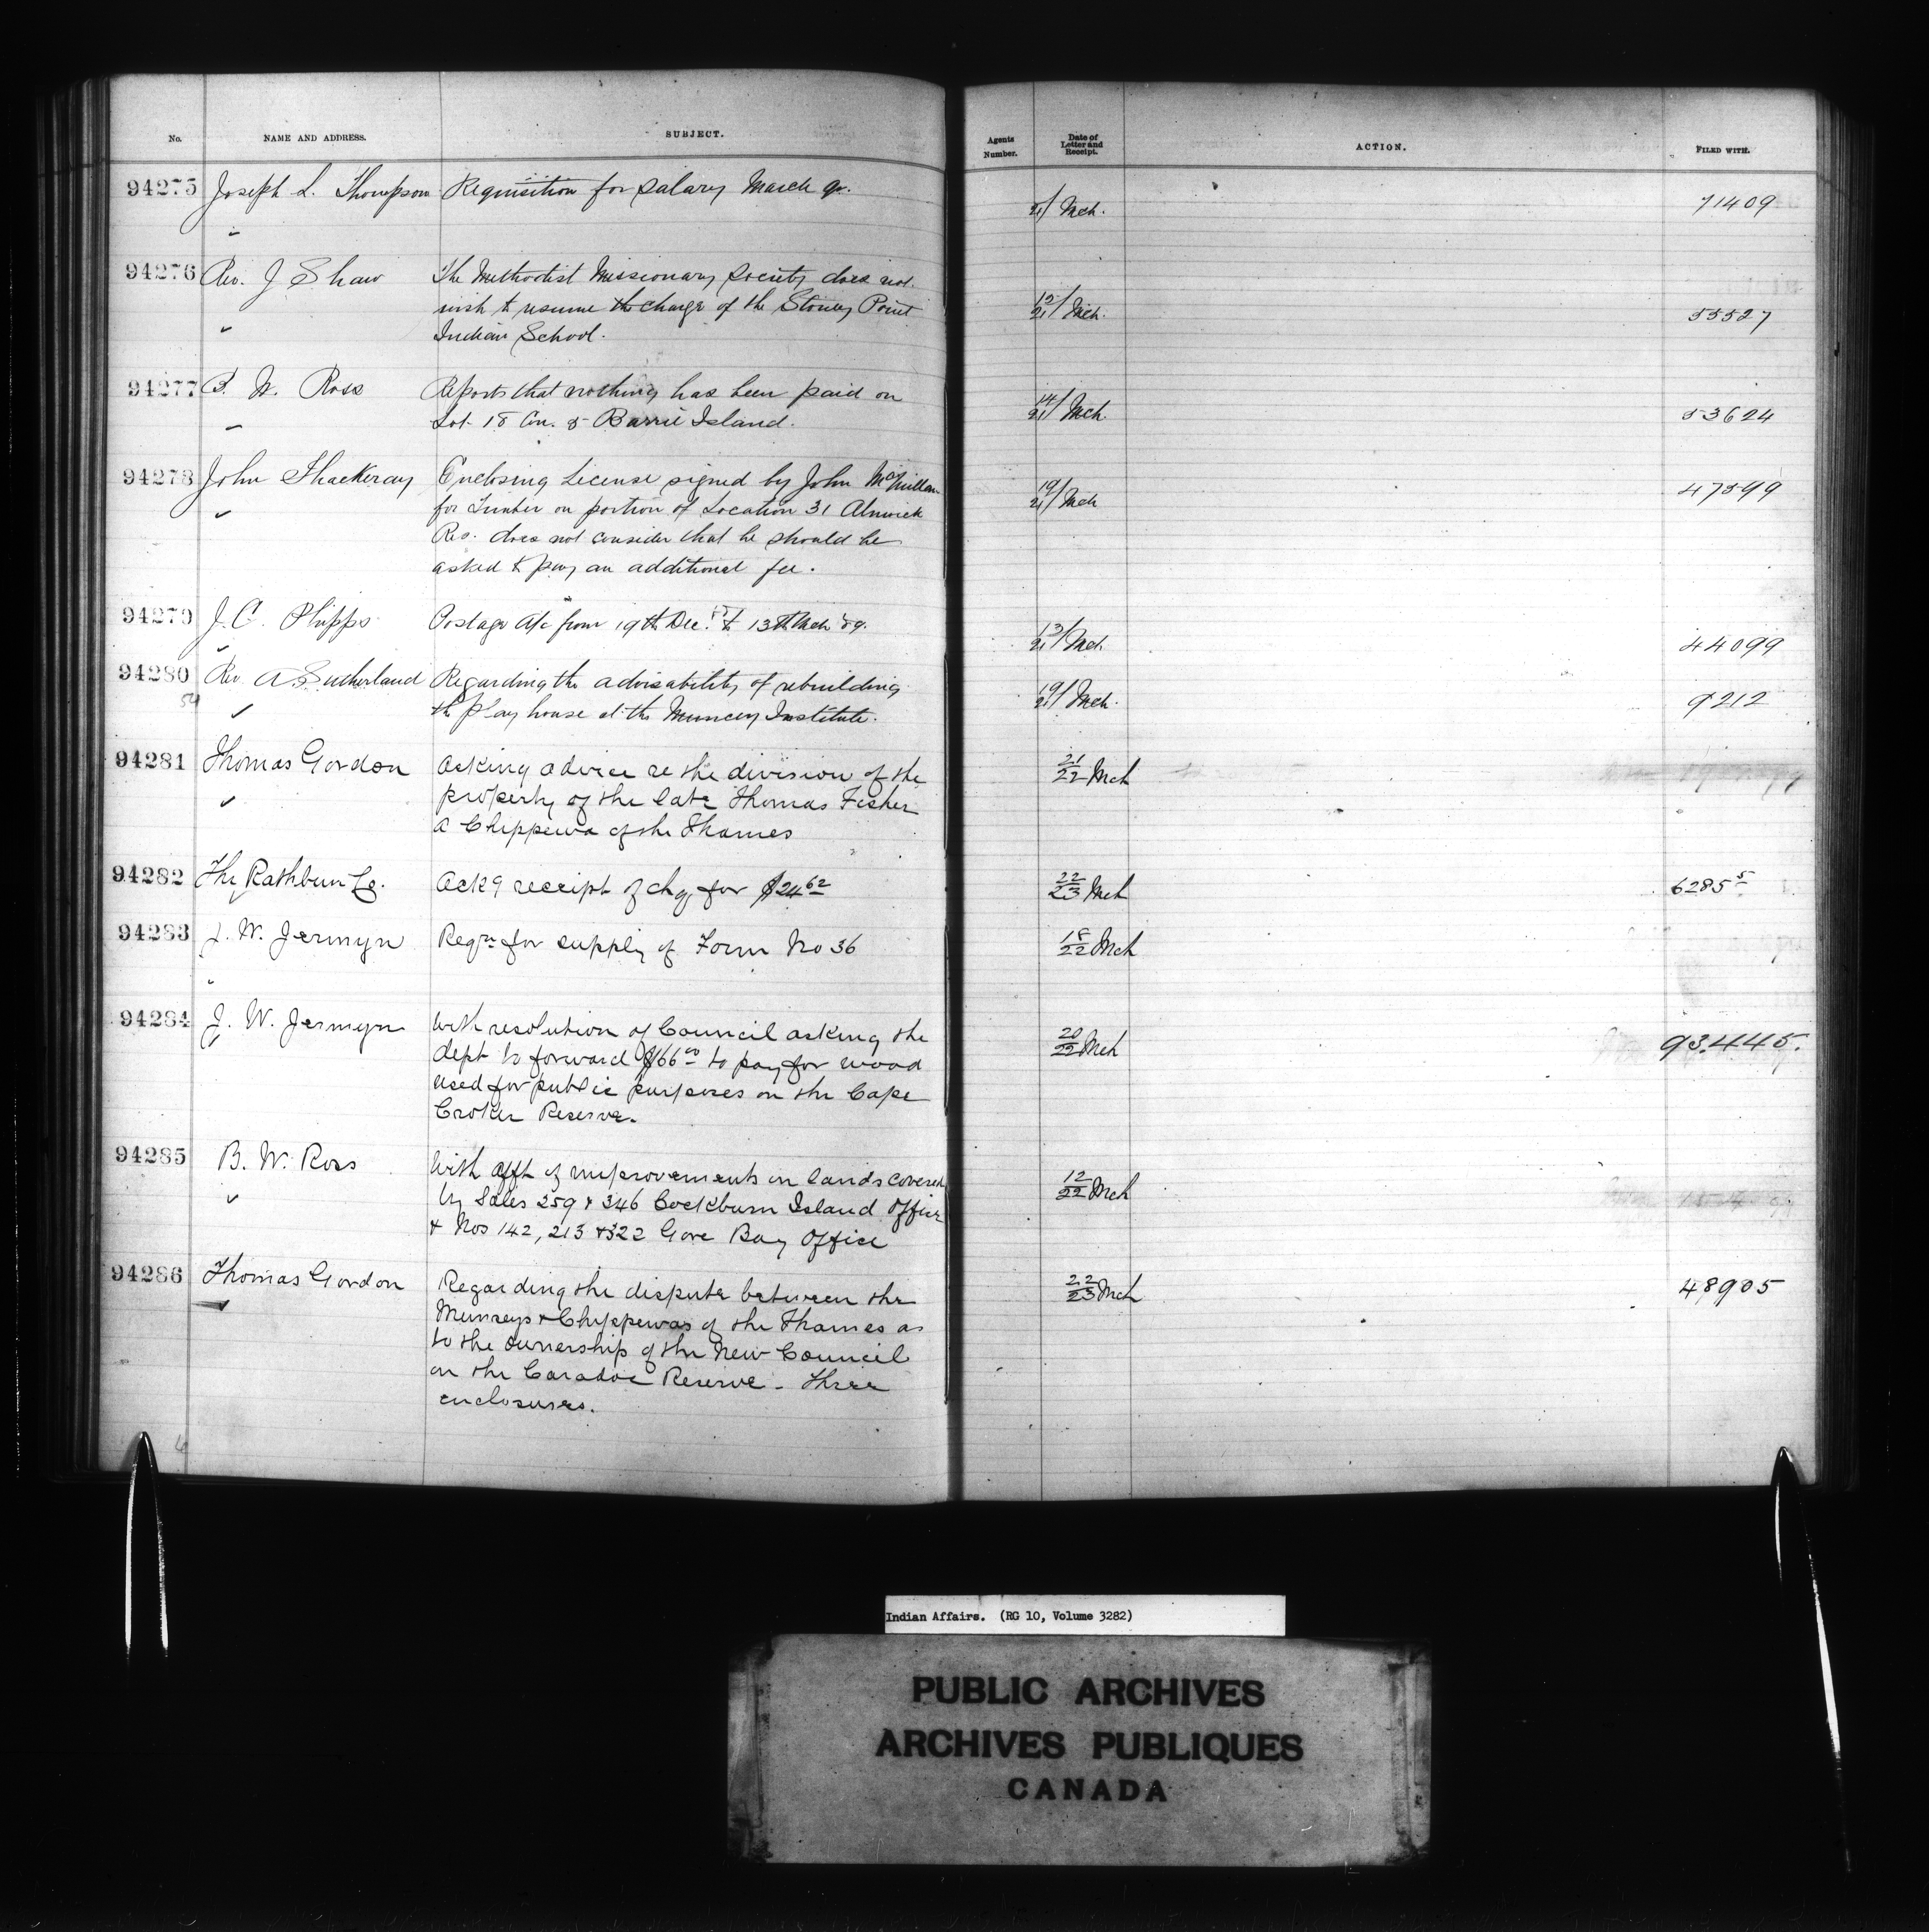 No. NAME AND ADDRESS. SUBJECT. Agents Number. Date of Letter and Receipt. ACTION. FILED WITH.
94275 Joseph L. Thompson Requisition for Salary March qr. 21/ Mch. 71409
94276 Rev. J Shaw The Methodist Missionary Society does not 12/21 Mch. 55527
wish to resume the charge of the Stoney Point
Indian School.
94277 B. W. Ross Reports that nothing has been paid on 14/21 Mch. 53624
Lot 18 Con. 8 Barrie Island.
94278 John Thackeray Enclosing License signed by John McMillan 19/21 Mch 47599
for Timber on portion of Location 31 Alnwick
Res. does not consider that he should be
asked to pay an additional fee.
94279 J. C. Phipps Postage a/c from 19th Dec. to 13th Mch '89. 13/21 Mch 44099
94280 Rev A. Sutherland Regarding the advisability of rebuilding 19/21 Mch. 9212
the play house at the Muncey Institute.
94281 Thomas Gordon Asking advice re the division of the 21/22 Mch
property of the late Thomas Fisher
a Chippewa of the Thames
94282 The Rathbun Co. Ackg receipt of chq for $24 62 22/23 Mch 62855
94283 J. W. Jermyn Reqn for supply of Form No 36 18/22 Mch
94284 J. W. Jermyn With resolution of Council asking the 20/22 Mch 93.445.
dept to forward $66 00 to pay for wood
used for public purposes on the Cape
Croker Reserve.
94285 B. W. Ross With afft of improvements on lands covered 12/22 Mch
by Sales 259 & 346 Cockburn Island Office
& Nos 142, 213 & 322 Gore Bay Office
94286 Thomas Gordon Regarding the dispute between the 22/23 Mch 48905
Munseys & Chippewas of the Thames as
to the ownership of the New Council
on the Caradoc Reserve - Three
enclosures.
Indian Affairs. (RG 10, Volume 3282)
PUBLIC ARCHIVES
ARCHIVES PUBLIQUES
CANADA